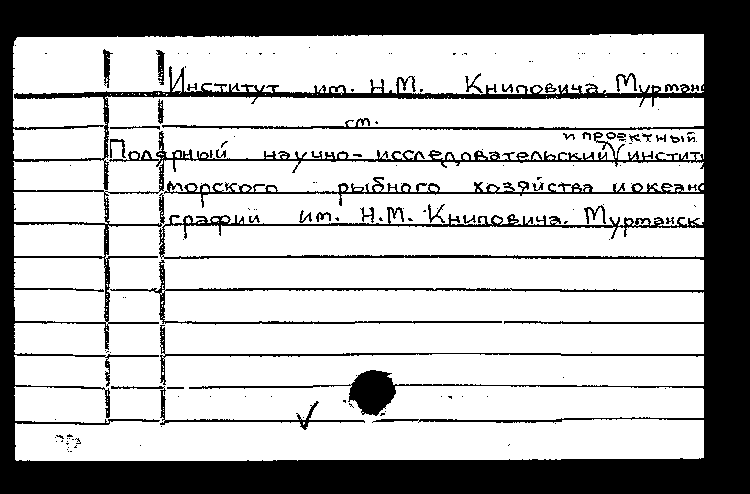 Институт им. Н.М. Книповича. Мурманс
см.
и проектный
Полярный научно-исследовательский институ
морского рыбного хозяйства и океано
графии им. Н.М. Книповича. Мурманск.